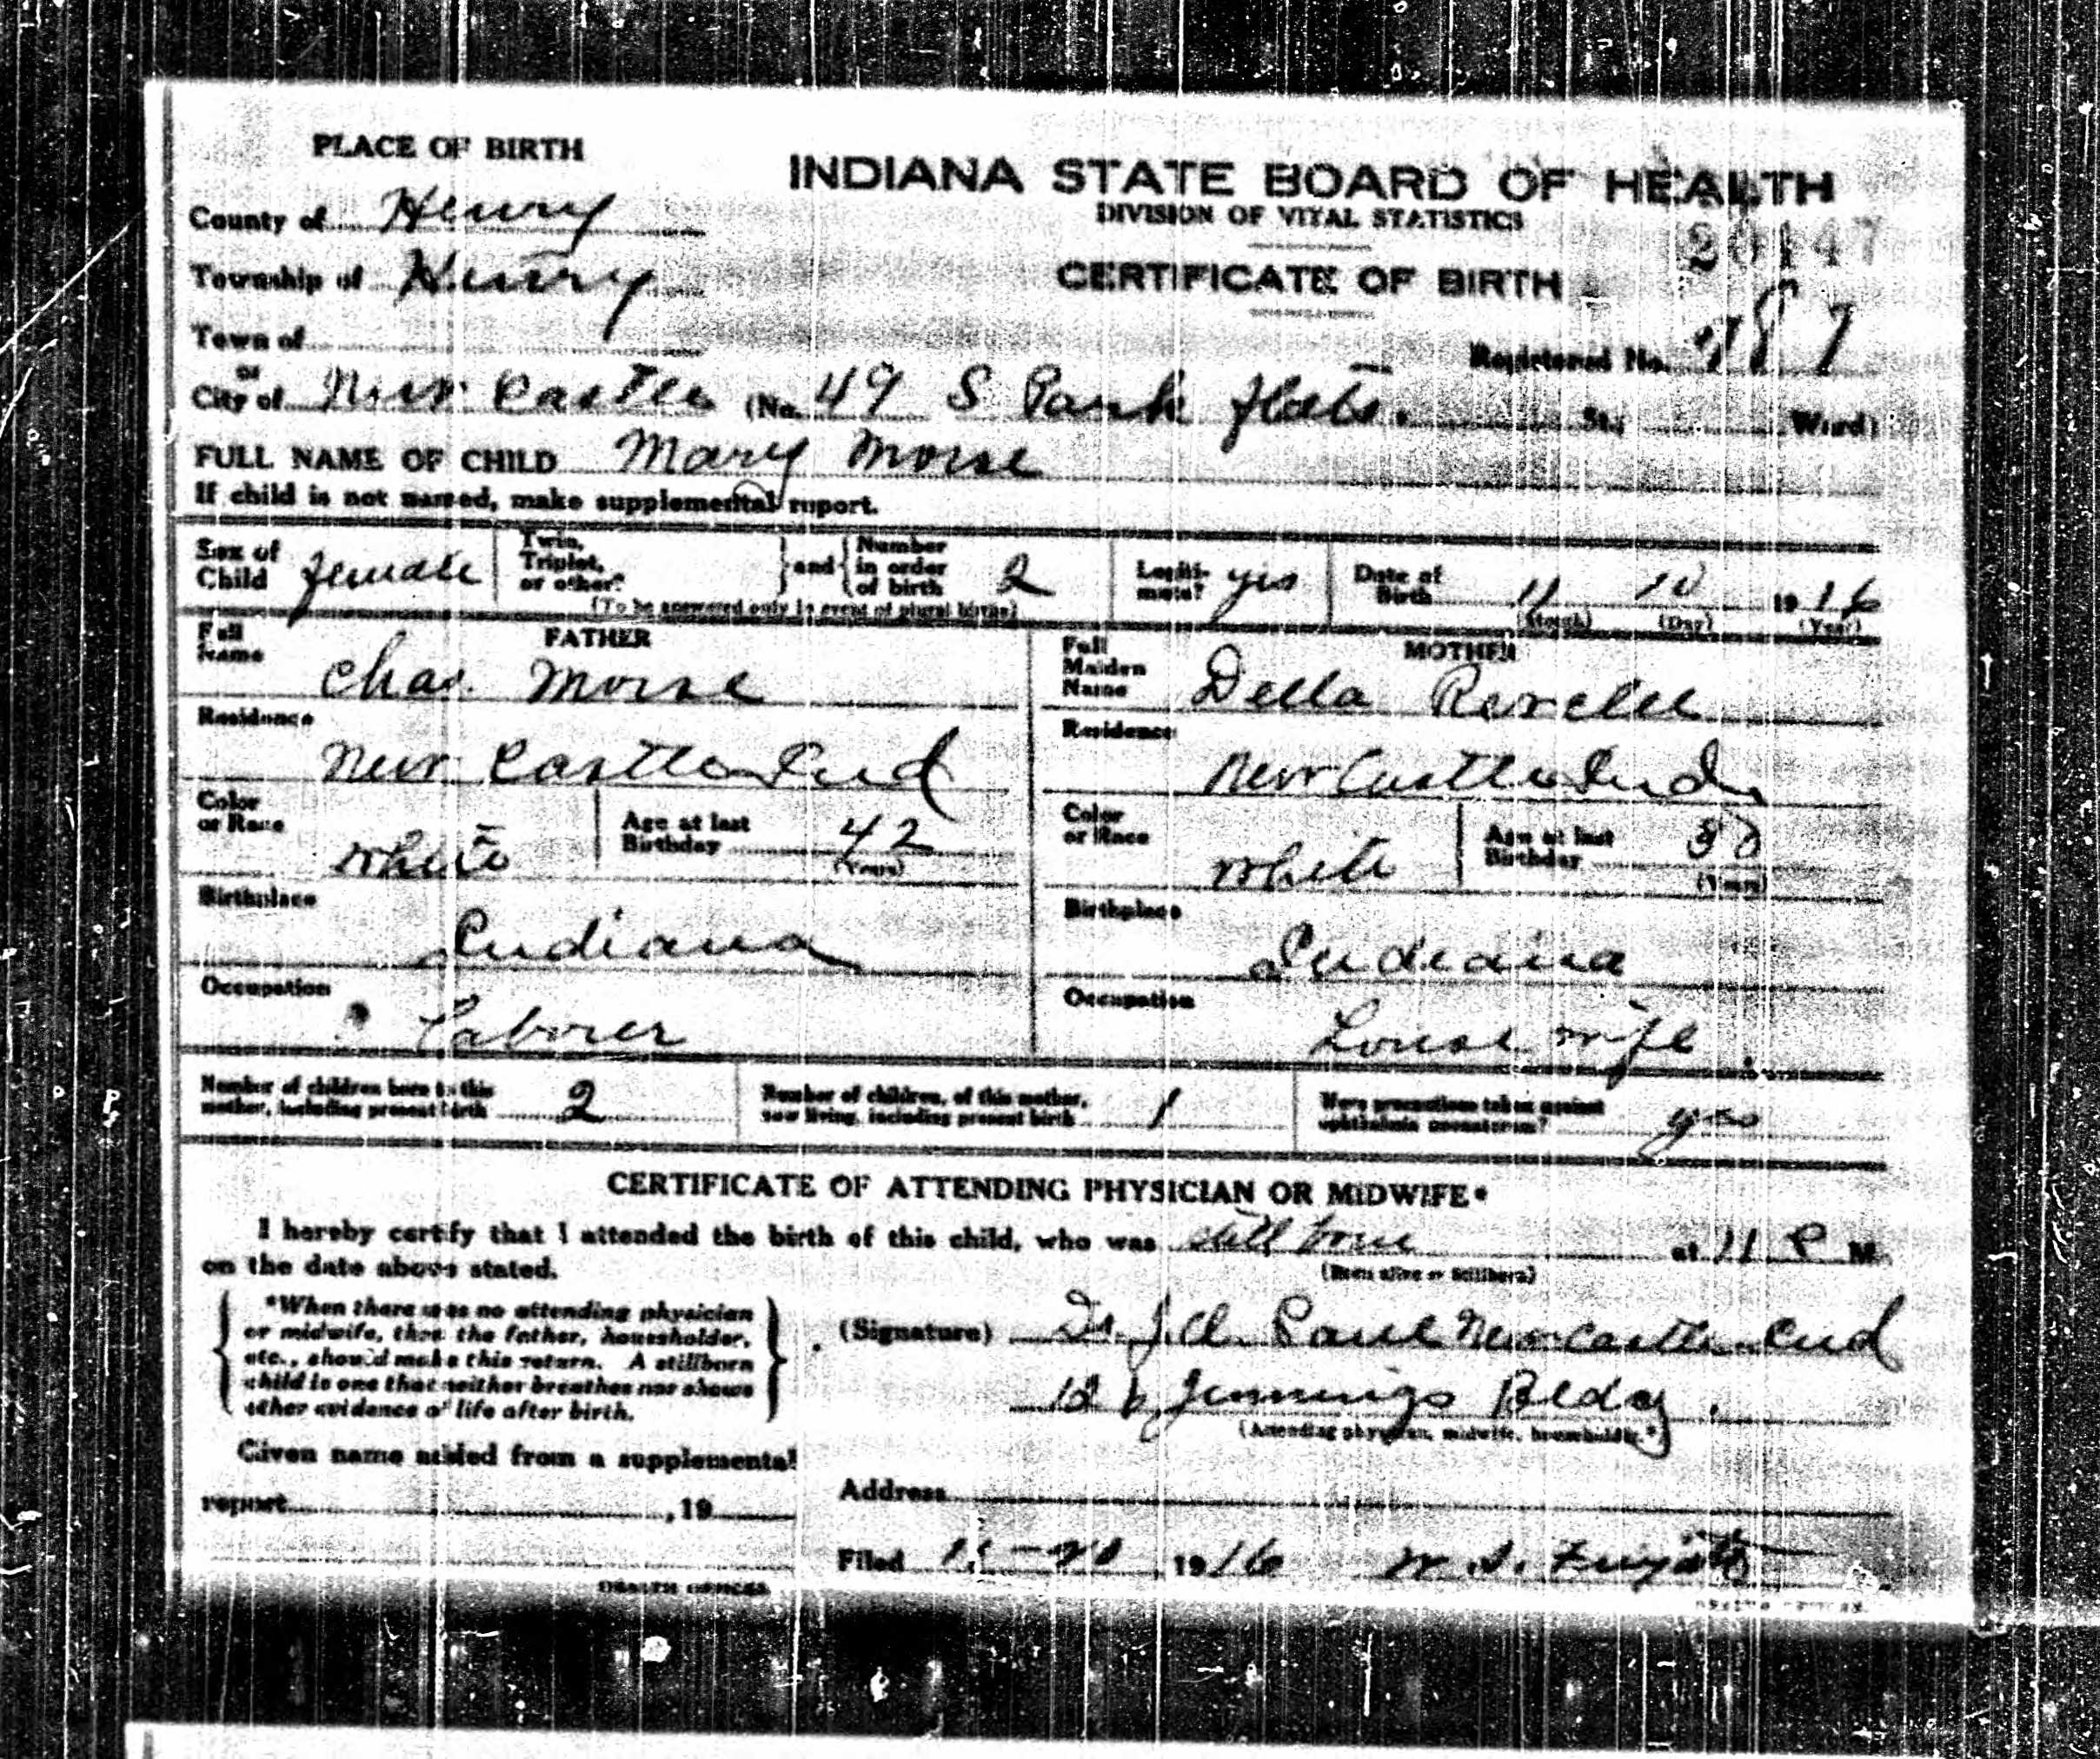 PLACE OF BIRTH
INDIANA STATE BOARD OF HEALTH
DIVISION OF VITAL STATISTICS
20447
CERTIFICATE OF BIRTH
County of Henry
Township of Henry
Town of
Registered No. 87
or
City of New Castle (No. 49 S Park flats. St.; Ward)
FULL NAME OF CHILD Mary Morse
If child is not named, make supplemental report.
Sex of Child female
Twin, Triplet, or other? and Number in order of birth 2
(To be answered only in event of plural births)
Legitimate? yes
Date of Birth 11 10 1916
(Month) (Day) (Year)
FATHER
Full Name Chas. Morse
Residence New Castle Ind
Color or Race white
Age at last Birthday 42
(Years)
Birthplace Indiana
Occupation Laborer
MOTHER
Full Maiden Name Della
Residence New Castle Ind
Color or Race white
Age at last Birthday 30
(Years)
Birthplace Indiana
Occupation House wife
Number of children born to this mother, including present birth 2
Number of children, of this mother, now living, including present birth 1
Were precautions taken against ophthalmia neonatorum? yes
CERTIFICATE OF ATTENDING PHYSICIAN OR MIDWIFE*
I hereby certify that I attended the birth of this child, who was still born at 11 P M.
(Born alive or Stillborn)
on the date above stated.
*When there was no attending physician
or midwife, then the father, householder,
etc., should make this return. A stillborn
child is one that neither breathes nor shows
other evidence of life after birth.
(Signature) Dr. New Castle Ind
Jennings Bldg.
(Attending physician, midwife, householder.*)
Given name added from a supplemental
report , 19
Address
Filed 1916 W. S.
HEALTH OFFICER
HEALTH OFFICER.